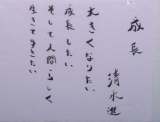 成長
清水進
大きくなりたい
成長したい
そして人間らしく
生きてきたい